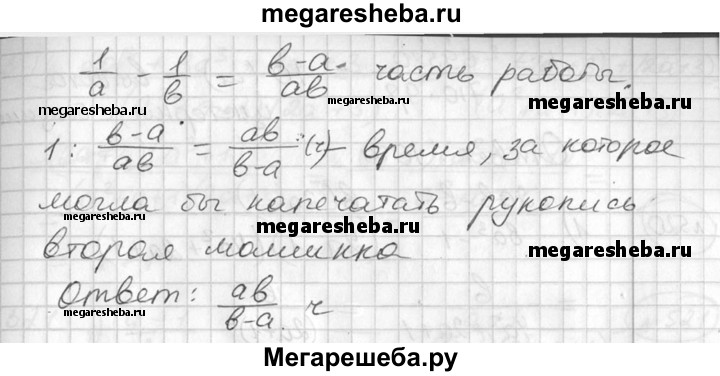 megaresheba.ru
1/a - 1/в = в-а/ав часть работы.
megaresheba.ru megaresheba.ru megaresheba.ru
1 : в-а/ав = ав/в-а (ч) – время, за которое
могла бы напечатать рукопись
megaresheba.ru megaresheba.ru megaresheba.ru
вторая машинка
Ответ: ав/в-а ч
megaresheba.ru megaresheba.ru
Мегарешеба.ру